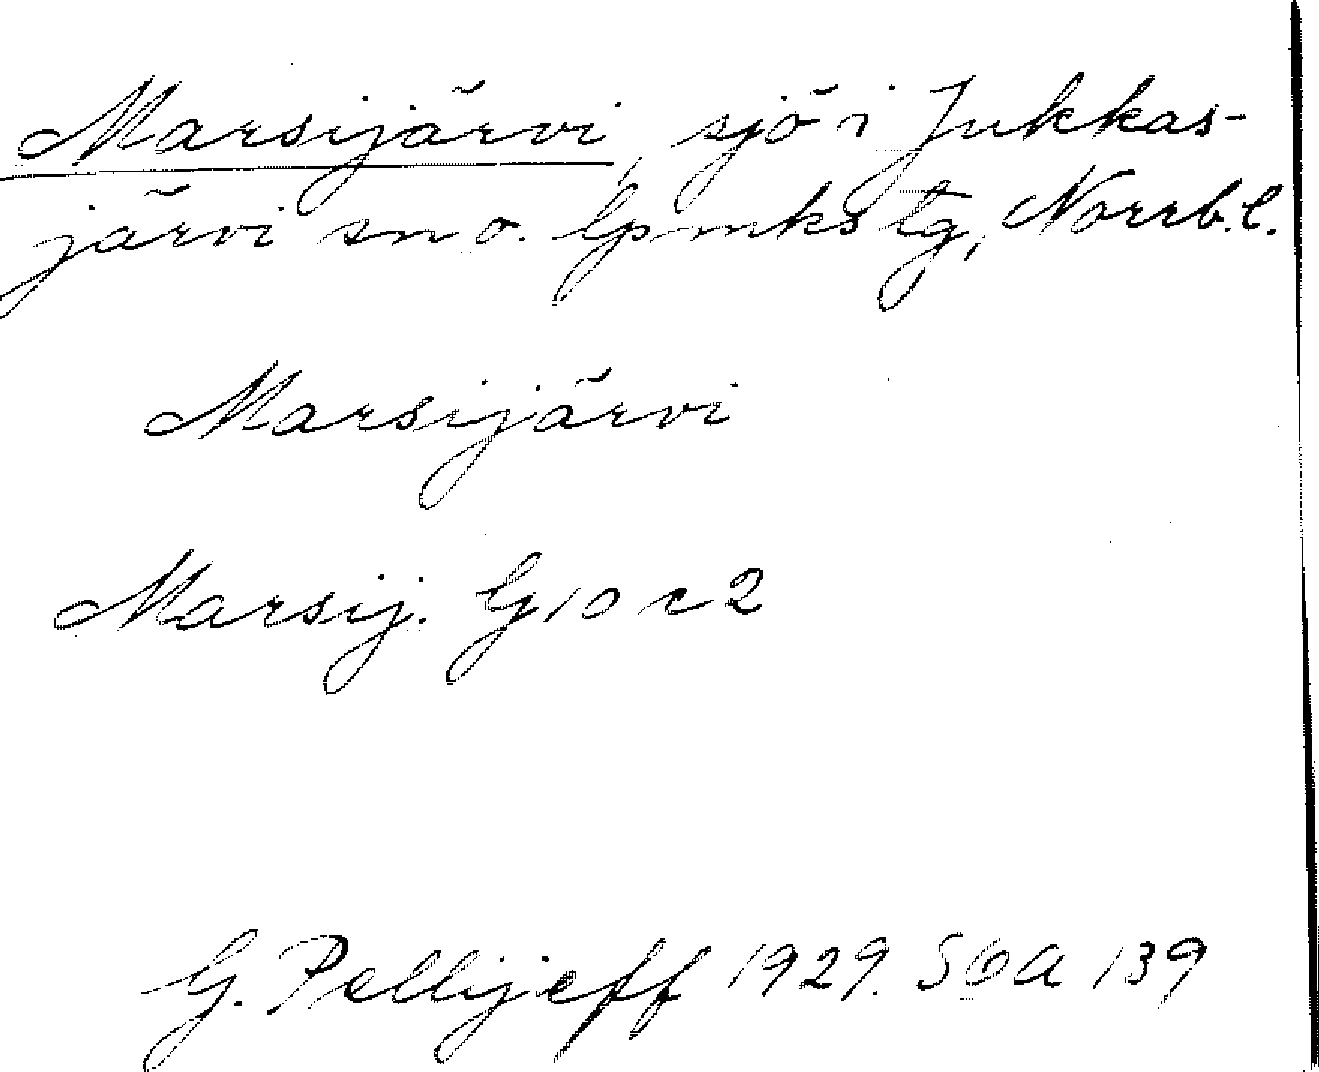 Marsijärvi, sjö i Jukkas-
järvi sn o. lpmks tg, Norrb.l.
Marsijärvi
Marsij. G 10 c 2
G. Pellijeff 1929. SOA 139